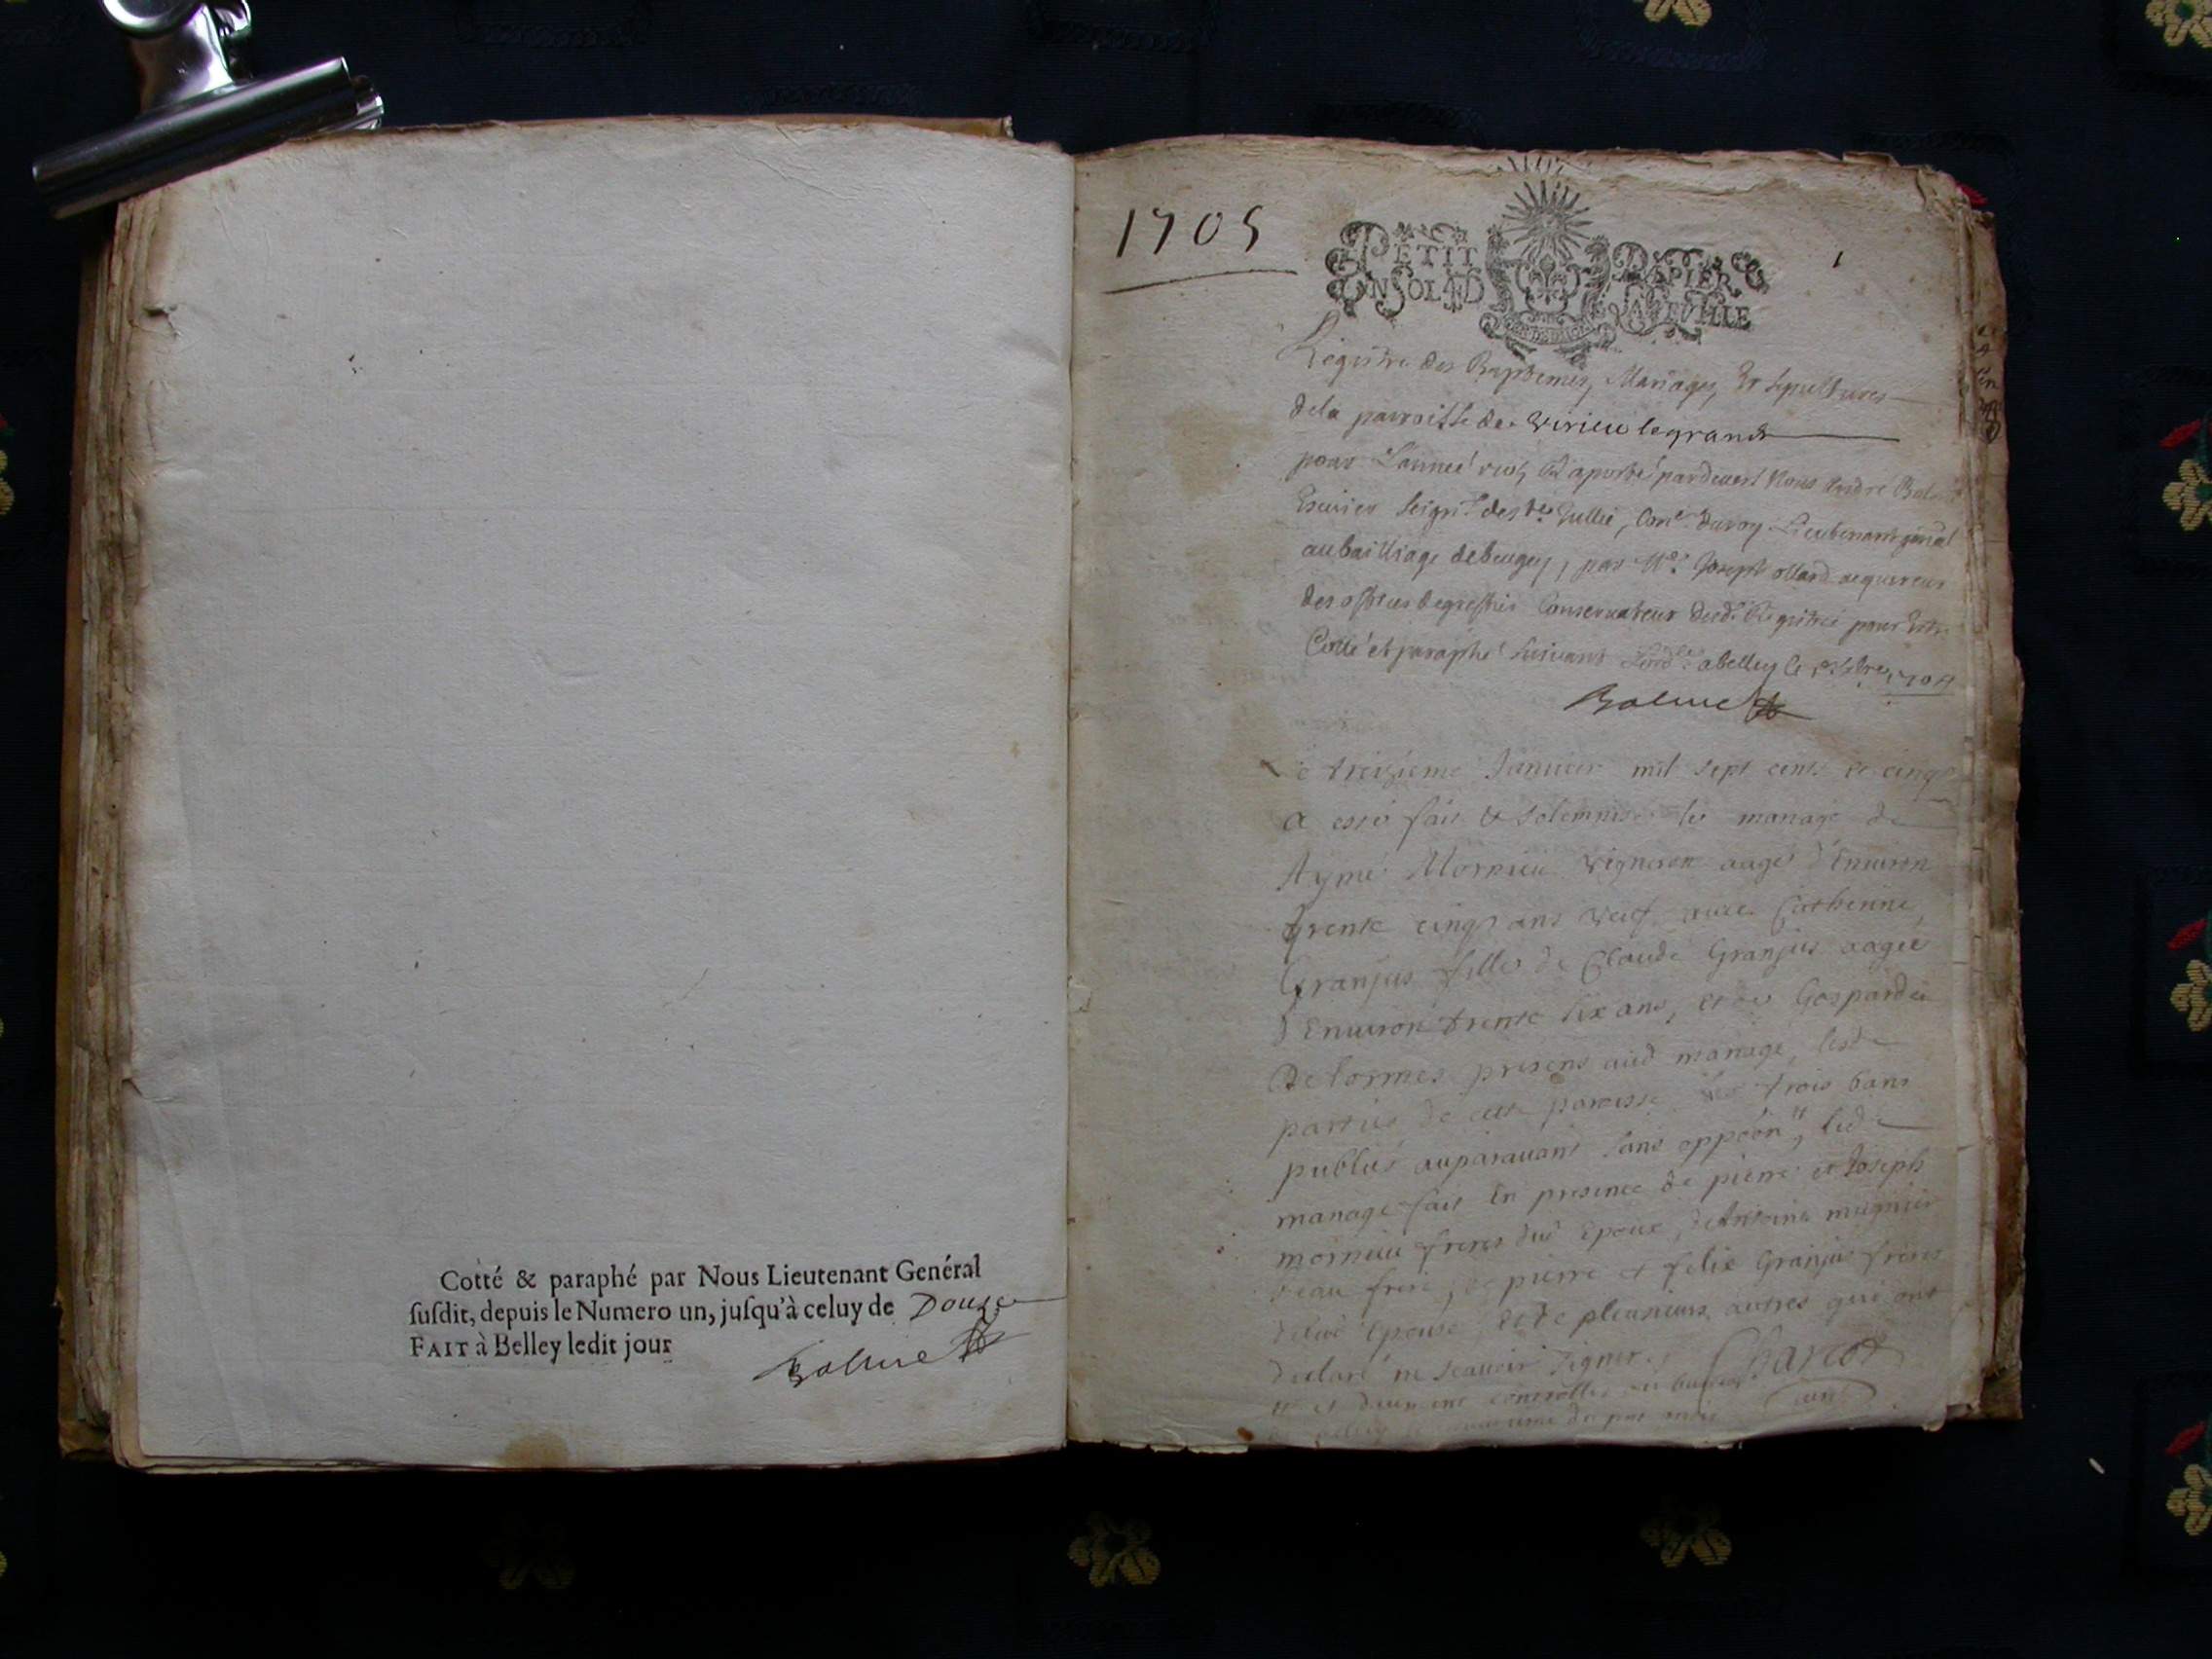 Cotté & paraphé par Nous Lieutenant Genéral
ſuſdit, depuis le Numero un, juſqu'à celuy de Douze
FAIT à Belley ledit jour
Balme
1705
PETIT PAPIER
UN SOL LA FEUILLE
1
Registre des Baptemes, Mariages, Et sepultures
dela parroisse de virieu legrand
pour L'année aporté pardevant Nous André Balme
Escuier seigr. de Jullie, Conr. du roy Lieutenant general
au bailliage de beugey, par Me. Joseph ollard acquereur
des offices de greffier Conservateur desd. Registres pour Estre
Cotté et paraphé suivant abelley le 1704
Balme
Le treizieme Janvier mil sept cents et cinq
a esté fait & solemnisé le mariage de
Aymé Mornieu vigneron aagé d'Environ
trente cinq ans veuf avec Catherine
Granjus fille de Claude Granjus aagée
d'Environ trente six ans, et de Gasparde
Delormes presens aud mariage, lesd
parties de cette paroisse les trois bans
publiés auparavant sans oppõon, led
mariage fait En presence de pierre et Joseph
mornieu freres dud Epoux, d'Antoine mugnier
beau frere, de pierre et felix Granjus freres
de lad Epouse, et de plusieurs autres qui ont
declaré ne scavoir signer. Charcot
et controllé au bureau curé
de belley le du mois